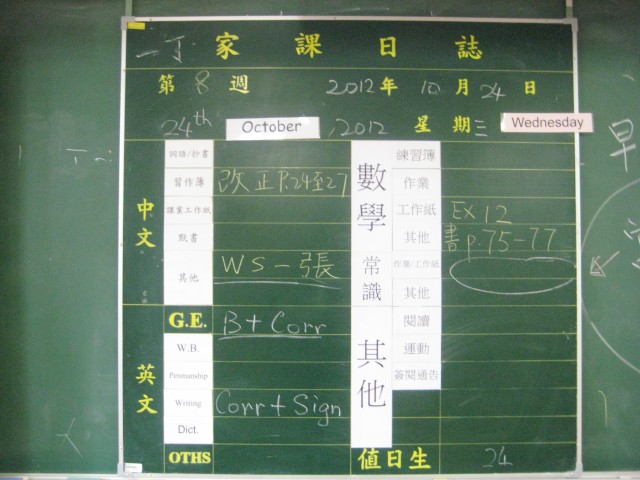 一丁 家課日誌
第 8 週 2012 年 10 月 24 日
24th October , 2012 星期三 Wednesday
中文
詞語/抄書
習作簿 改正 P.24至27
課業工作紙
默書
其他 WS－張
英文
G.E. B + Corr
W.B.
Penmanship
Writing Corr + Sign
Dict.
OTHS
數學
練習簿
作業
工作紙 EX 12
其他 書 p.75-77
常識
作業/工作紙
其他
其他
閱讀
運動
簽閱通告
值日生 24
早